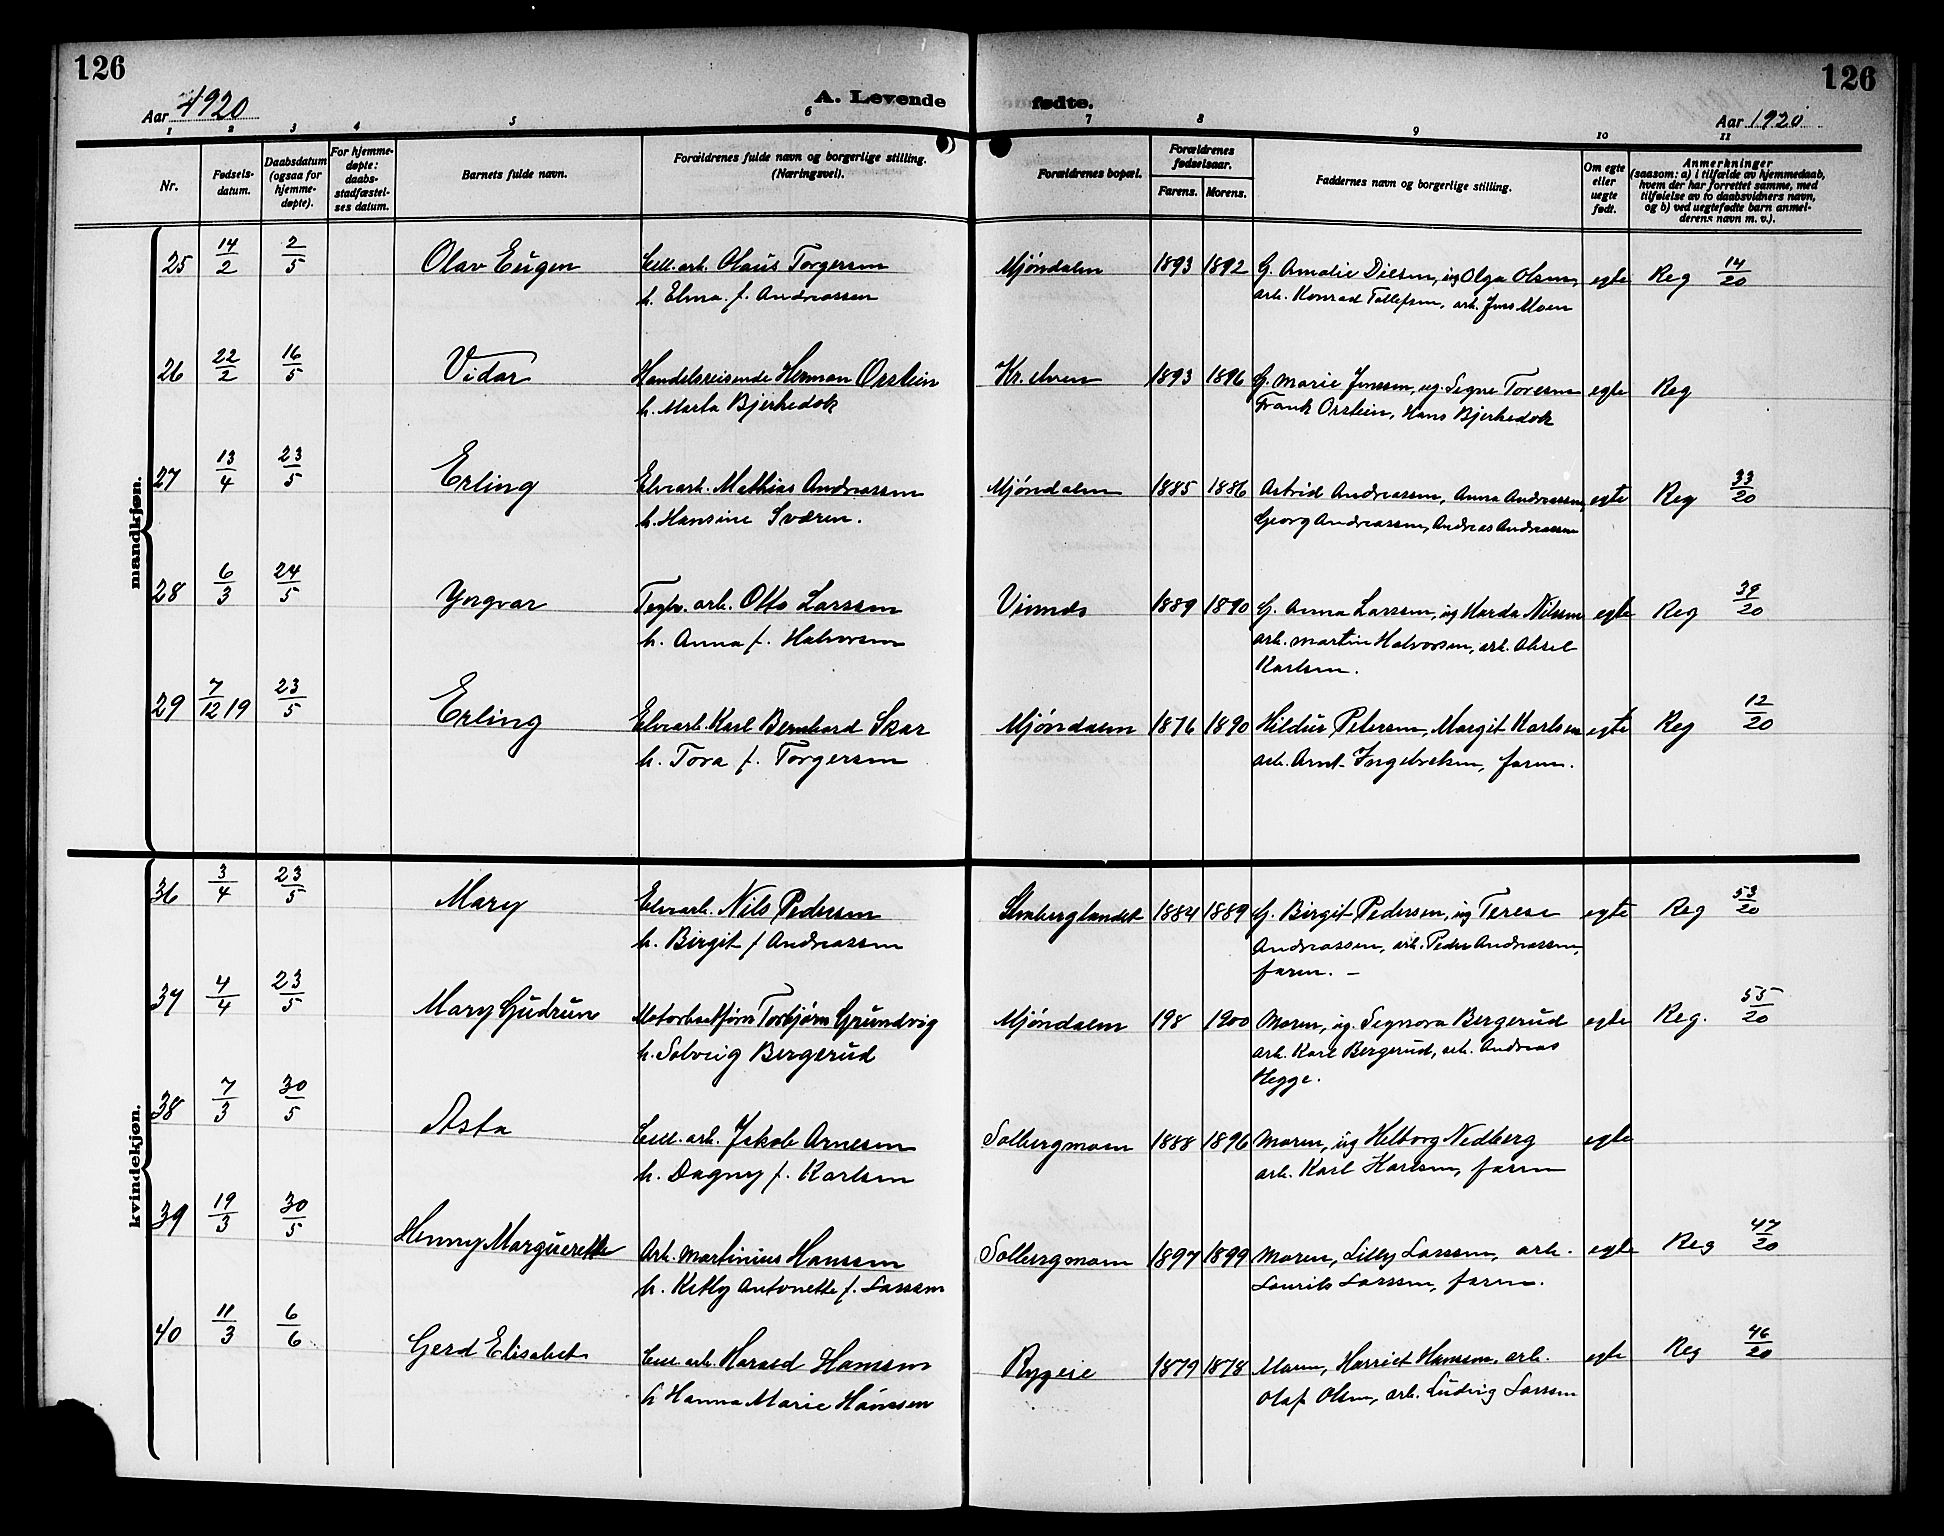 126
126
Aar 1920
A. Levende fødte.
Aar 1920
1 2 3 4 5 6 7 8 9 10 11
Nr.
Fødsels-
datum.
Daabsdatum
(ogsaa for
hjemme-
døpte).
For hjemme-
døpte:
daabs-
stadfæstel-
ses datum.
Barnets fulde navn.
Forældrenes fulde navn og borgerlige stilling.
(Næringsvei).
Forældrenes bopæl.
Forældrenes
fødselsaar.
Farens. Morens.
Faddernes navn og borgerlige stilling.
Om egte
eller
uegte
født.
Anmerkninger
(saasom: a) i tilfælde av hjemmedaab,
hvem der har forrettet samme, med
tilføielse av to daabsvidners navn,
og b) ved uegtefødte barn anmel-
derens navn m. v.).
mandkjøn.
25 14/2 2/5 Olav Eugen Cell. arb. Olaus Torgersen Mjøndalen 1893 1892 G. Amalie Diesen, ug Olga Olsen, egte Reg 14/20
h. Elma f. Andreassen arb. Konrad Tollefsen, arb. Jens Moen
26 22/2 16/5 Vidar Handelsreisende Herman Orstein Kr. elven 1893 1896 G. Marie Jenssen, ug. Signe Toresen egte Reg
h. Marta Bjerkedok Frank Orstein, Hans Bjerkedok
27 13/4 23/5 Erling Elvearb. Mathias Andreassen Mjøndalen 1885 1886 Astrid Andreassen, Anna Andreassen, egte Reg 33/20
h. Hansine Sværen. Georg Andreassen, Andreas Andreassen
28 6/3 24/5 Yngvar Teglv. arb. Otto Larssen Vinnes 1889 1890 G. Anna Larssen, ug Harda Nilssen egte Reg 39/20
h. Anna f. Halvorsen arb. Martin Halvorsen, arb. Aksel
Karlsen.
29 7/12 19 23/5 Erling Elvearb. Karl Bernhard Skar Mjøndalen 1876 1890 Hildur Petersen, Margit Karlsen egte Reg 12/20
h. Tora f. Torgersen arb. Arnt Ingebretsen, faren.
kvindekjøn.
36 3/4 23/5 Mary Elvearb. Nils Pedersen Stenberglandet 1884 1889 G. Birgit Pedersen, ug Terese egte Reg 53/20
h. Birgit f Andreassen Andreassen, arb. Peder Andreassen,
faren. –
37 4/4 23/5 Mary Gudrun Motorbaatfører Torbjørn Grundvig Mjøndalen 198 1900 Moren, ug. Signora Bergerud egte Reg. 55/20
h. Solveig Bergerud arb. Karl Bergerud, arb. Andreas
Hegge.
38 7/3 30/5 Asta Cell. arb. Jakob Arnesen Solbergmoen 1888 1896 Moren, ug Helborg Nedberg egte
h. Dagny f. Karlsen arb. Karl Karlsen, faren
39 19/3 30/5 Henny Marguerethe Arb. Martinius Hanssen Solbergmoen 1897 1899 Moren, Lilly Larssen, arb. egte Reg 47/20
h. Kitty Antonette f. Larssen Laurits Larssen, faren.
40 11/3 6/6 Gerd Elisabet Cell. arb. Harald Hanssen Rygeie 1879 1878 Moren, Harriet Hanssen, arb. egte Reg 46/20
h Hanna Marie Hanssen Olaf Olsen, arb. Ludvig Larssen